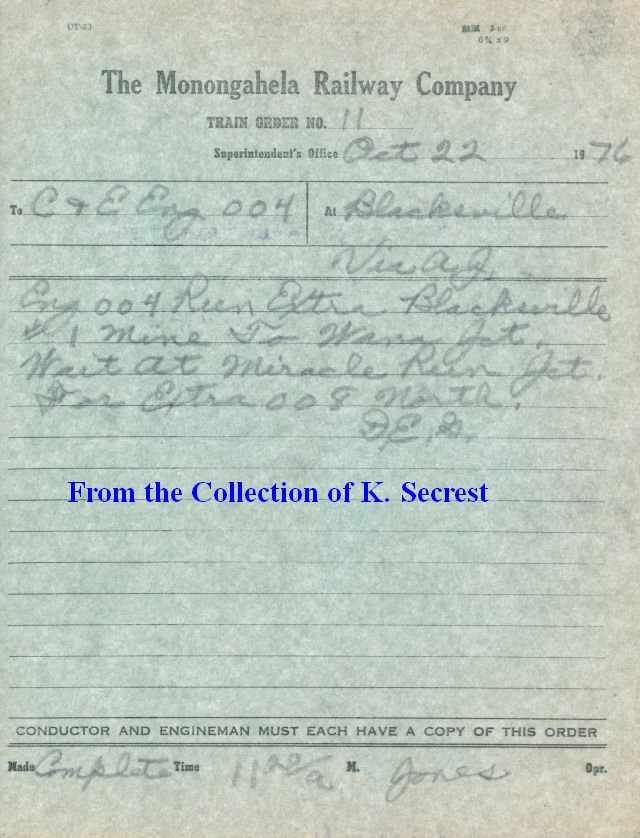 CT-33
The Monongahela Railway Company
TRAIN ORDER NO. 11
Superintendent's Office Oct 22 1976
To C & E Eng 004 At Blacksville
Via A.J.
Eng 004 Run Extra Blacksville
# 1 Mine To Wana Jct.
Wait At Miracle Run Jct.
For Extra 008 North.
From the Collection of K. Secrest
CONDUCTOR AND ENGINEMAN MUST EACH HAVE A COPY OF THIS ORDER
Made Complete Time M. Jones Opr.